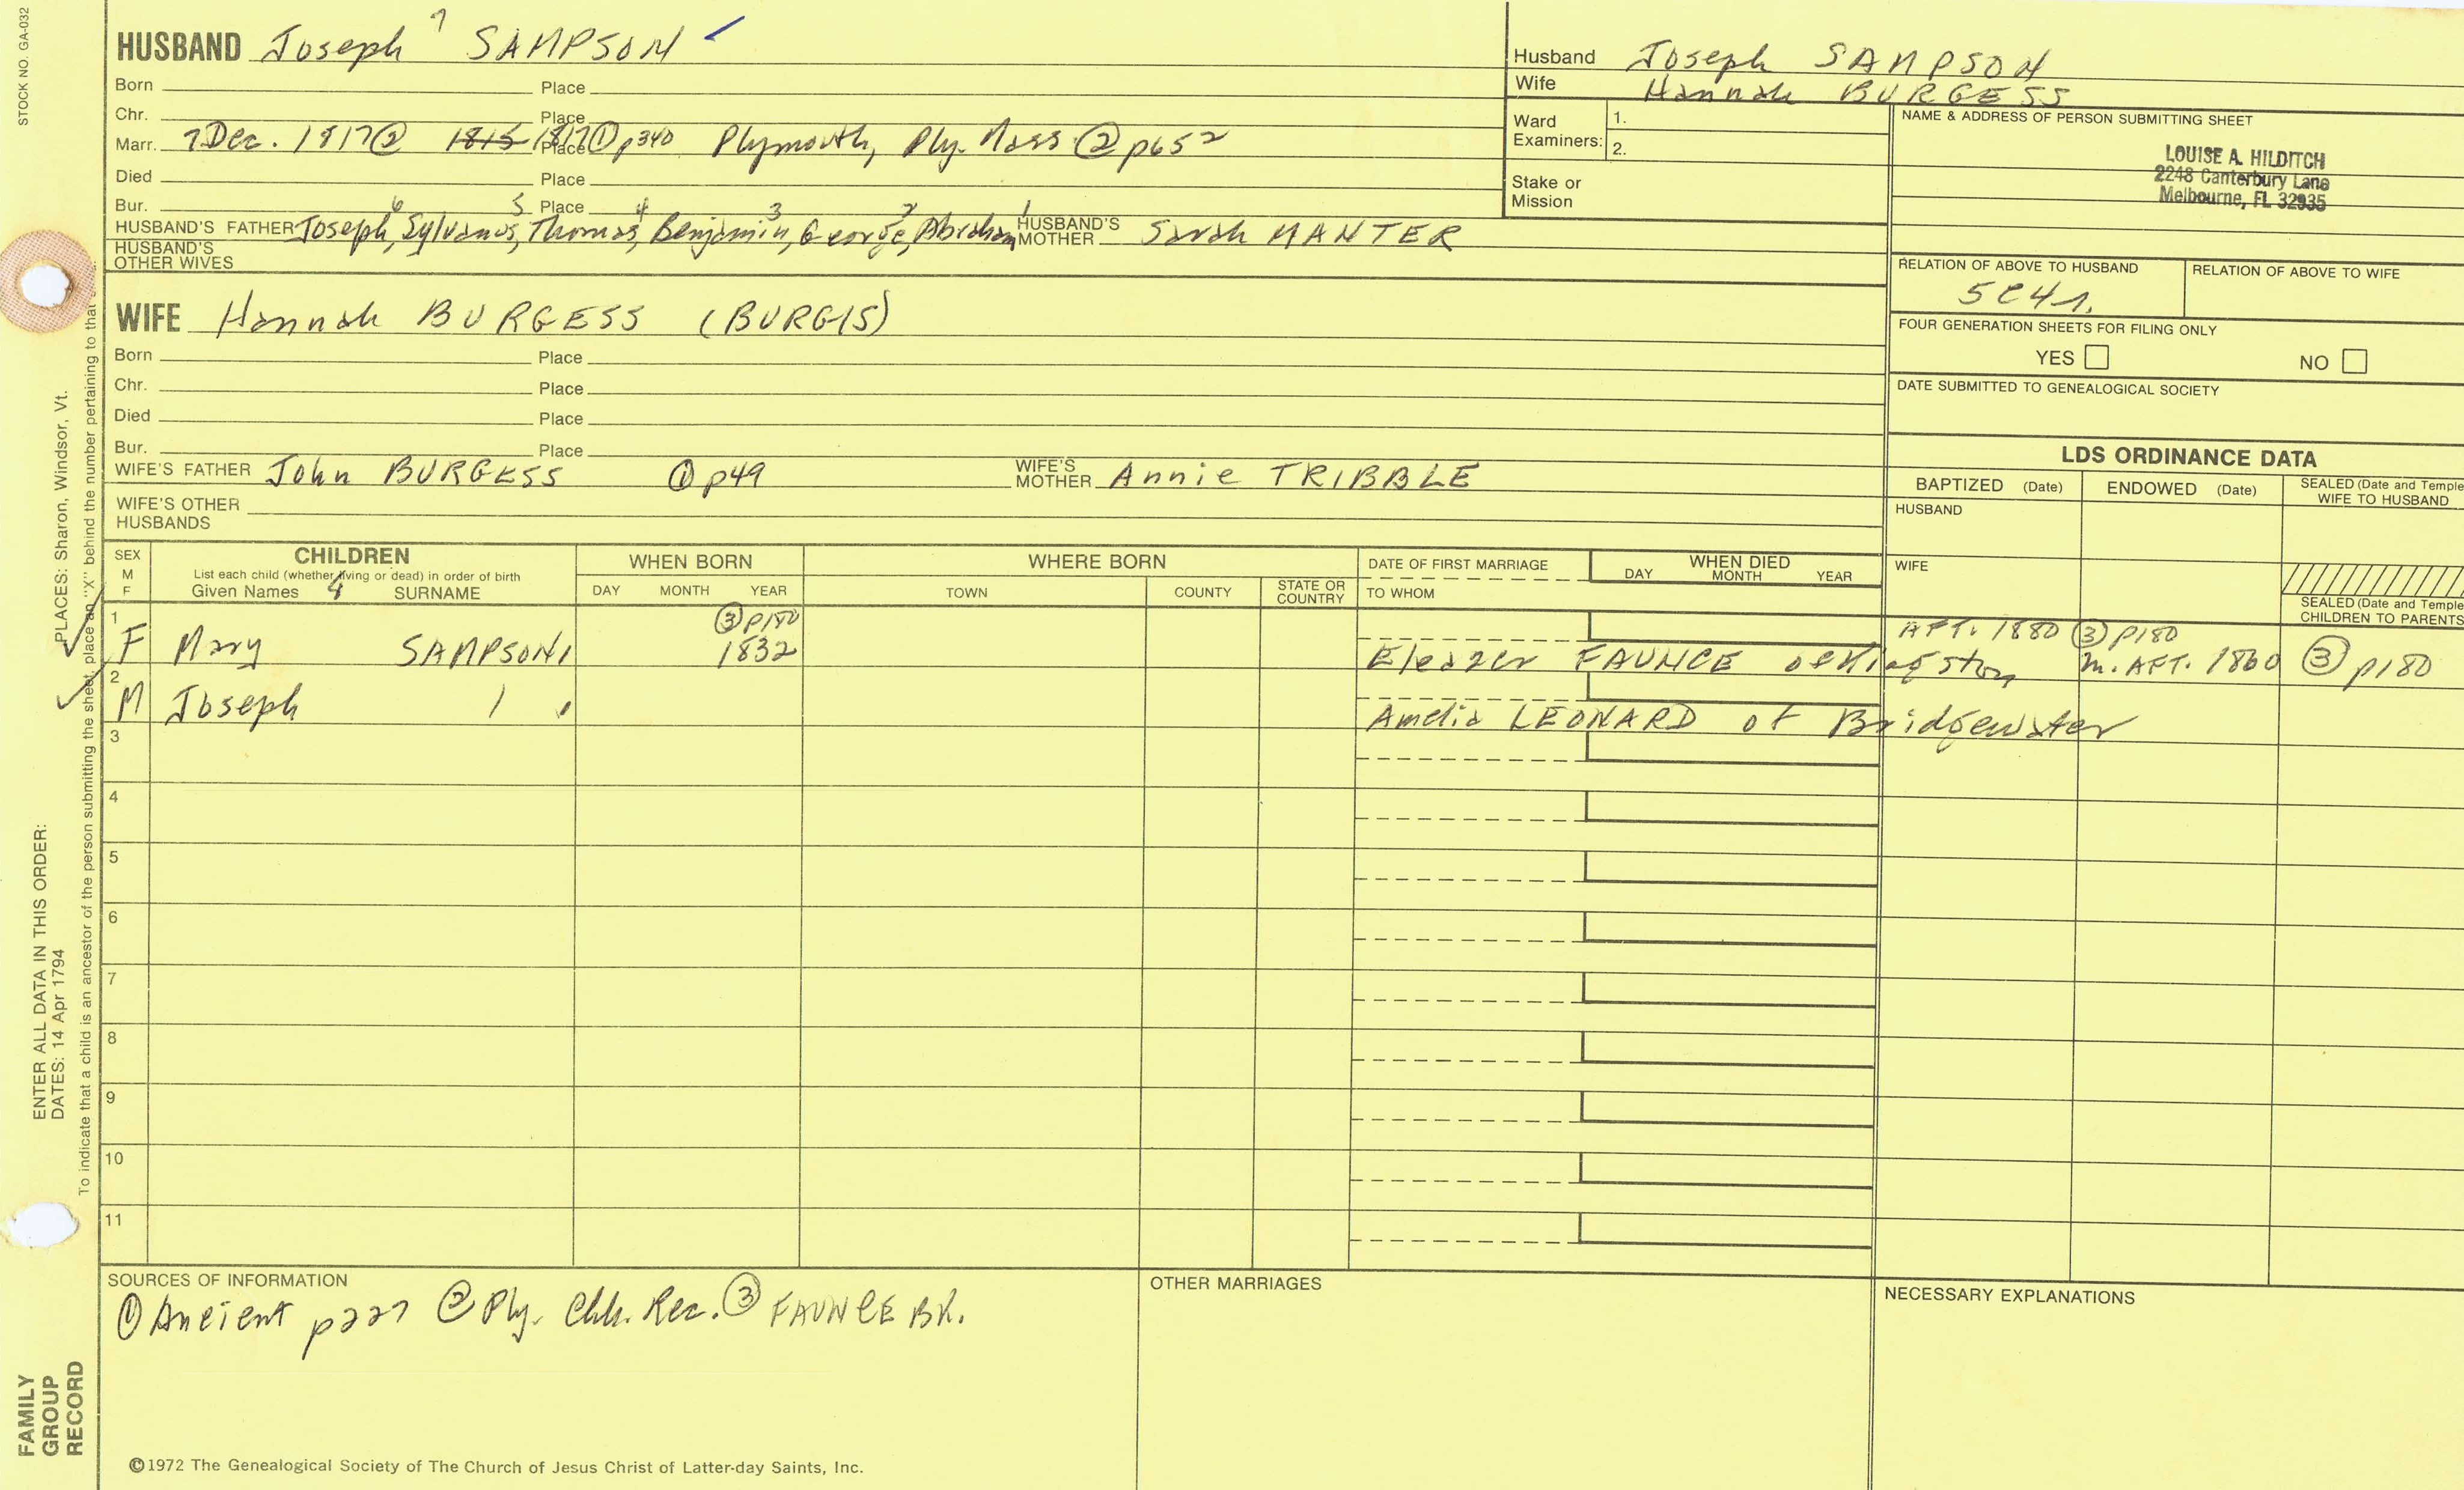 STOCK NO. GA-032
HUSBAND Joseph 7 SAMPSON
Born Place
Chr. Place
Marr. 7 Dec. 1817② 1815 1817 Place ①p340 Plymouth, Ply. Mass ② p652
Died Place
Bur. Place
HUSBAND'S FATHER Joseph 6, Sylvanus 5, Thomas 4, Benjamin 3, George 2, Abraham 1 HUSBAND'S MOTHER Sarah MANTER
HUSBAND'S OTHER WIVES
Husband Joseph SAMPSON
Wife Hannah BURGESS
Ward Examiners: 1.
2.
Stake or Mission
NAME & ADDRESS OF PERSON SUBMITTING SHEET
LOUISE A. HILDITCH
2248 Canterbury Lane
Melbourne, FL 32935
RELATION OF ABOVE TO HUSBAND RELATION OF ABOVE TO WIFE
FOUR GENERATION SHEETS FOR FILING ONLY
YES NO
DATE SUBMITTED TO GENEALOGICAL SOCIETY
WIFE Hannah BURGESS (BURGIS)
Born Place
Chr. Place
Died Place
Bur. Place
WIFE'S FATHER John BURGESS ① p49 WIFE'S MOTHER Annie TRIBBLE
WIFE'S OTHER HUSBANDS
LDS ORDINANCE DATA
BAPTIZED (Date) ENDOWED (Date) SEALED (Date and Temple
WIFE TO HUSBAND
HUSBAND
WIFE
SEALED (Date and Temple
CHILDREN TO PARENTS
SEX M F CHILDREN WHEN BORN WHERE BORN DATE OF FIRST MARRIAGE WHEN DIED
List each child (whether living or dead) in order of birth
Given Names SURNAME DAY MONTH YEAR TOWN COUNTY STATE OR COUNTRY TO WHOM DAY MONTH YEAR
1 ③ p180 AFT. 1880 ③ p180
F Mary SAMPSON 1832 Eleazer FAUNCE of Kingston m. AFT. 1860 ③ p180
2
M Joseph Amelia LEONARD of Bridgewater
3
4
5
6
7
8
9
10
11
SOURCES OF INFORMATION
① Ancient p227 ② Ply. Chh. Rec. ③ FAUNCE BK.
OTHER MARRIAGES
NECESSARY EXPLANATIONS
©1972 The Genealogical Society of The Church of Jesus Christ of Latter-day Saints, Inc.
FAMILY GROUP RECORD
ENTER ALL DATA IN THIS ORDER:
DATES: 14 Apr 1794
PLACES: Sharon, Windsor, Vt.
To indicate that a child is an ancestor of the person submitting the sheet, place an "X" behind the number pertaining to that